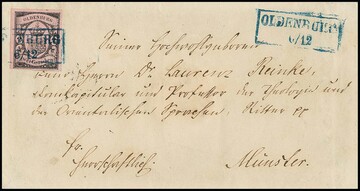 OLDENBURG
OLDENBURG
6/12
Seiner Hochwohlgeboren
dem Herrn Dr. Laurenz Reinke,
Domkapitular und Professor der Theologie und
der Orientalischen Sprachen, Ritter pp
fr.
Herrschaftlich.
Münster.